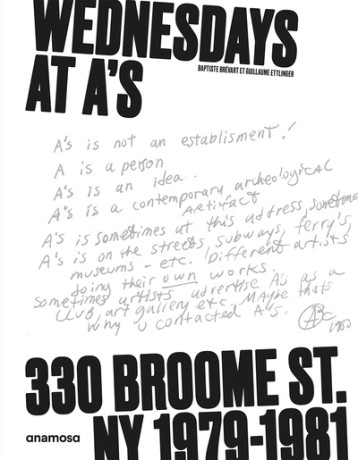 WEDNESDAYS
AT A'S
BAPTISTE BRÉVART ET GUILLAUME ETTLINGER
A's is not an establisment!
A is a person
A's is an idea.
A's is a contemporary archeological
Artifact
A's is sometimes at this address, sometime
A's is on the streets, subways, ferry's,
museums - etc. Different artists,
doing their own works.
Sometimes artists advertise A's as a
Club, art gallery etc. Maybe thats
why u contacted A's.
330 BROOME ST.
anamosa
NY 1979-1981